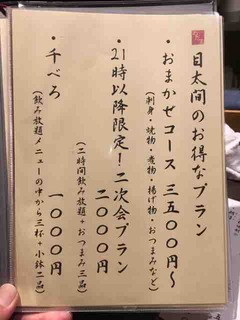 目太間のお得なプラン
・おまかせコース 三五〇〇円〜
(刺身・焼物・煮物・揚げ物・おつまみなど)
・21時以降限定！二次会プラン
二〇〇〇円
(二時間飲み放題+おつまみ三品)
・千べろ 一〇〇〇円
(飲み放題メニューの中から三杯+小鉢二品)